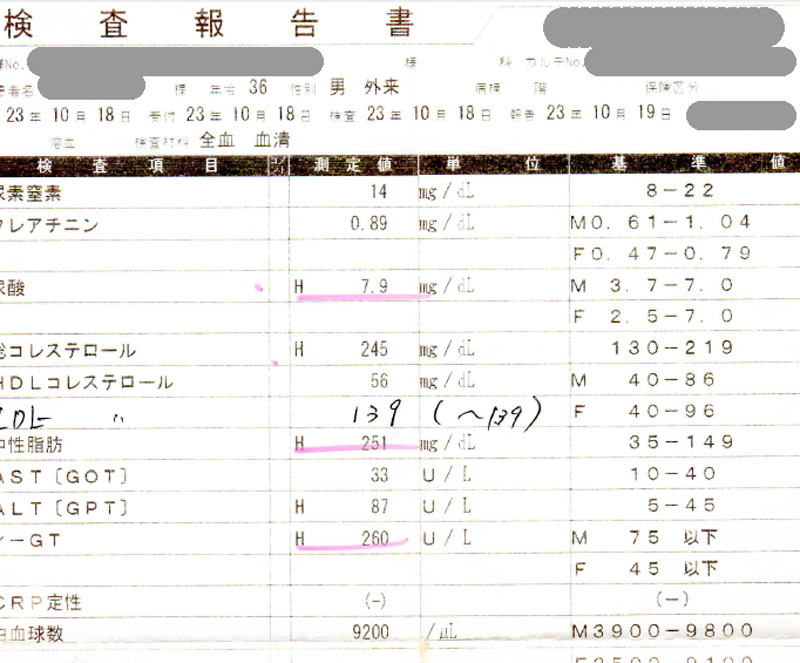 検査報告書
様No. 様 科 カルテNo.
患者名 様 年令 36 性別 男 外来 病棟 階 保険区分
23年10月18日 受付 23年10月18日 検査 23年10月18日 報告 23年10月19日
溶血 検査材料 全血 血清
検査項目 測定値 単位 基準値
尿素窒素 14 mg/dL 8-22
クレアチニン 0.89 mg/dL M0.61-1.04
F0.47-0.79
尿酸 H 7.9 mg/dL M 3.7-7.0
F 2.5-7.0
総コレステロール H 245 mg/dL 130-219
HDLコレステロール 56 mg/dL M 40-86
LDL 〃 139 (~139) F 40-96
中性脂肪 H 251 mg/dL 35-149
AST〔GOT〕 33 U/L 10-40
ALT〔GPT〕 H 87 U/L 5-45
γ-GT H 260 U/L M 75 以下
F 45 以下
CRP定性 (-) (-)
白血球数 9200 /μL M3900-9800